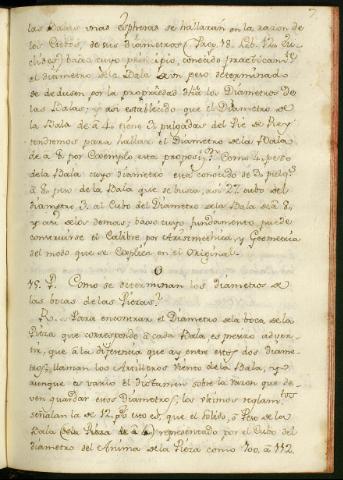 7
las Balas unas Espheras se hallarán en la razon de
los Cubos, de sus Diametros (Prop. 18. Lib. 12 de Eu-
clides) baxo cuyo principio, conocido practicam.te
el diametro de la Bala de un peso determinado
se deducen por la propriedad dha los Diametros de
las Balas; y asi establecido que el Diametro de
la Bala de á 4. tiene 3. pulgadas del Pie de Rey
tendremos para hallar el Diametro de la Bala
de á 8. por Exemplo esta proposi.on Como 4. peso
de la Bala cuyo diametro está conocido de 3. pulg.s
á 8. peso de la Bala que se busca, asi 27. cubo del
diametro 3. al Cubo del Diametro de la Bala de á 8,
y asi de los demas; baxo cuyo fundamento puede
construirse el Calibre por Arismethica, y Geometria
del modo que se explica en el Original.
15. P. Como se determinan los diametros de
las bocas de las Piezas?
R. Para encontrar el Diametro de la boca de la
Pieza que corresponde á cada Bala es preciso adver-
tir, que á la diferencia que ay entre estos dos diame-
tros, llaman los Artilleros viento de la Bala, y
aunque es vario el dictamen sobre la razon que de-
ven guardar estos Diametros; los ultimos reglam.tos
señalan la de 12. p.s esto es, que el solido, o Peso de la
Bala representado por el Cubo del
diametro del Anima de la Pieza como 100. á 112.